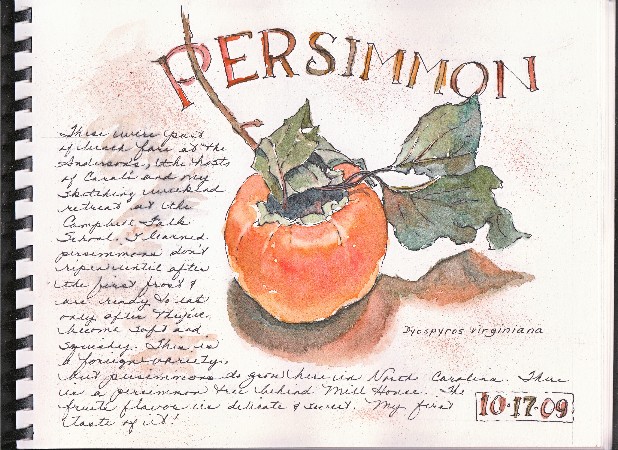 PERSIMMON
These were part
of lunch fare at the
Anderson's, the hosts
of Carol's and my
sketching weekend
retreat at the
Campbell Folk
School. I learned
persimmons don't
ripen until after
the first frost &
are ready to eat
only after they're
become soft and
squishy. This is
a foreign variety,
but persimmons do grow here in North Carolina. There
is a persimmon tree behind Mill House. The
fruits flavor is delicate & sweet. My first
taste of it!
Dyospyros virginiana
10·17·09